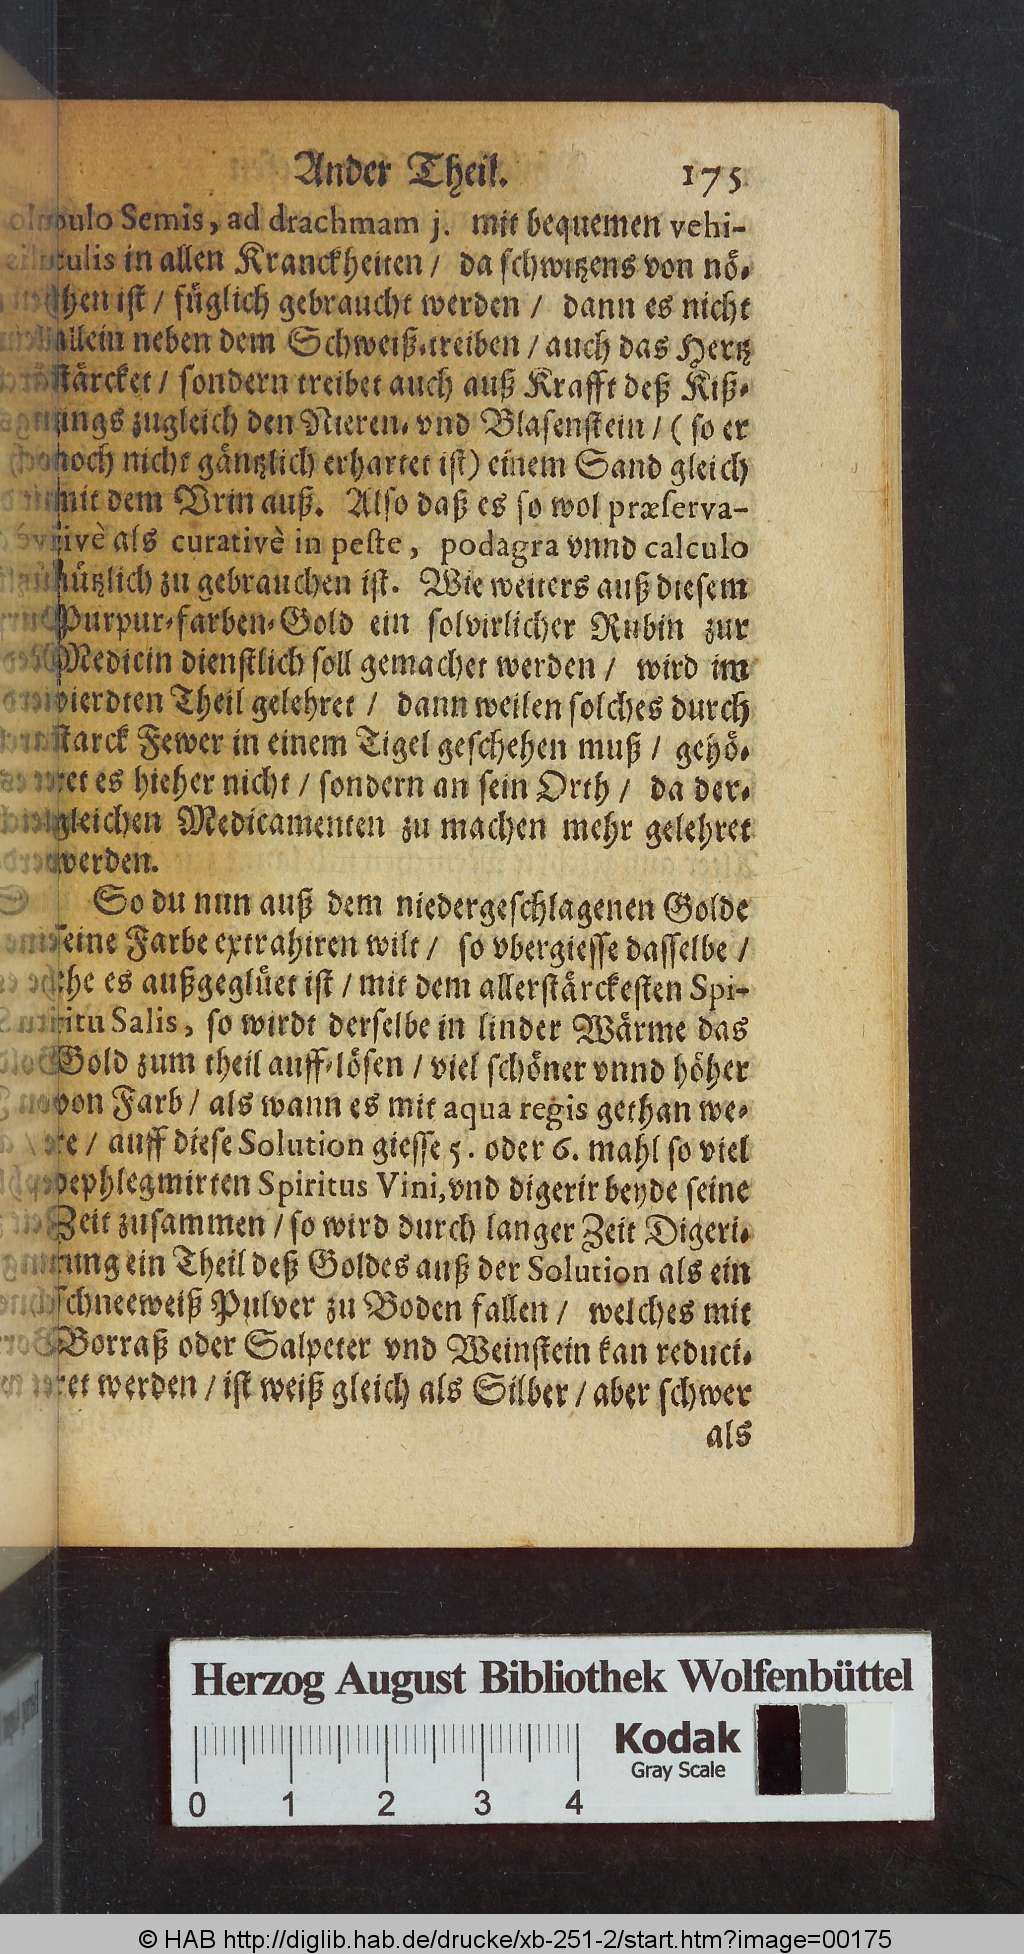 Ander Theil. 175
pulo Semis, ad drachmam j. mit bequemen vehi-
culis in allen Kranckheiten / da schwitzens von nö-
hen ist / füglich gebraucht werden / dann es nicht
allein neben dem Schweiß-treiben / auch das Hertz
stärcket / sondern treibet auch auß Krafft deß Kiß-
lings zugleich den Nieren- vnd Blasenstein / ( so er
noch nicht gäntzlich erhartet ist) einem Sand gleich
mit dem Vrin auß. Also daß es so wol præserva-
tivè als curativè in peste, podagra vnnd calculo
nützlich zu gebrauchen ist. Wie weiters auß diesem
Purpur-farben-Gold ein solvirlicher Rubin zur
Medicin dienstlich soll gemachet werden / wird im
vierdten Theil gelehret / dann weilen solches durch
starck Fewer in einem Tigel geschehen muß / gehö-
ret es hieher nicht / sondern an sein Orth / da der-
gleichen Medicamenten zu machen mehr gelehret
werden.
So du nun auß dem niedergeschlagenen Golde
seine Farbe extrahiren wilt / so vbergiesse dasselbe /
ehe es außgeglüet ist / mit dem allerstärckesten Spi-
ritu Salis, so wirdt derselbe in linder Wärme das
Gold zum theil auff-lösen / viel schöner vnnd höher
von Farb / als wann es mit aqua regis gethan we-
re / auff diese Solution giesse 5. oder 6. mahl so viel
dephlegmirten Spiritus Vini, vnd digerir beyde seine
Zeit zusammen / so wird durch langer Zeit Digeri-
rung ein Theil deß Goldes auß der Solution als ein
schneeweiß Pulver zu Boden fallen / welches mit
Borraß oder Salpeter vnd Weinstein kan reduci-
ret werden / ist weiß gleich als Silber / aber schwer
als
Herzog August Bibliothek Wolfenbüttel
Kodak
Gray Scale
0 1 2 3 4
© HAB http://diglib.hab.de/drucke/xb-251-2/start.htm?image=00175